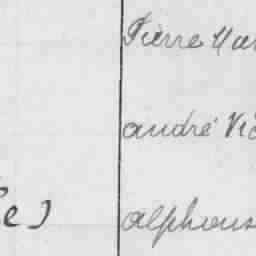 Pierre Mar
andré Vic
e) alphons